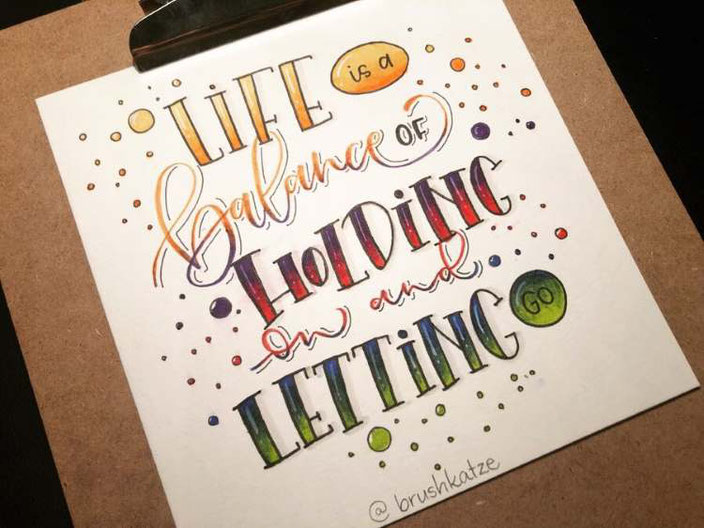 LiFE is a
balance OF
HOLDiNG
on and
LETTiNG GO
@brushkatze